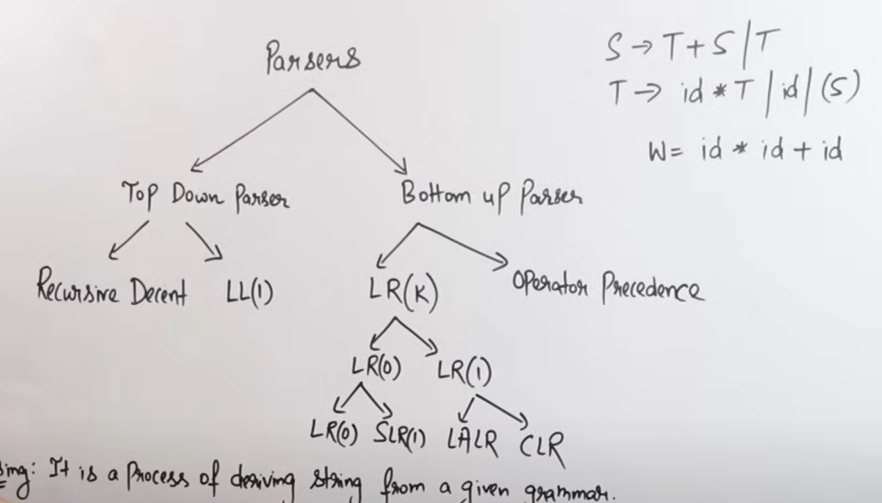 Parsers
S → T + S | T
T → id * T | id | (S)
W = id * id + id
Top Down Parser
Bottom up Parser
Recursive Decent
LL(1)
LR(K)
Operator Precedence
LR(0)
LR(1)
LR(0)
SLR(1)
LALR
CLR
sing: It is a Process of deriving string from a given grammar.